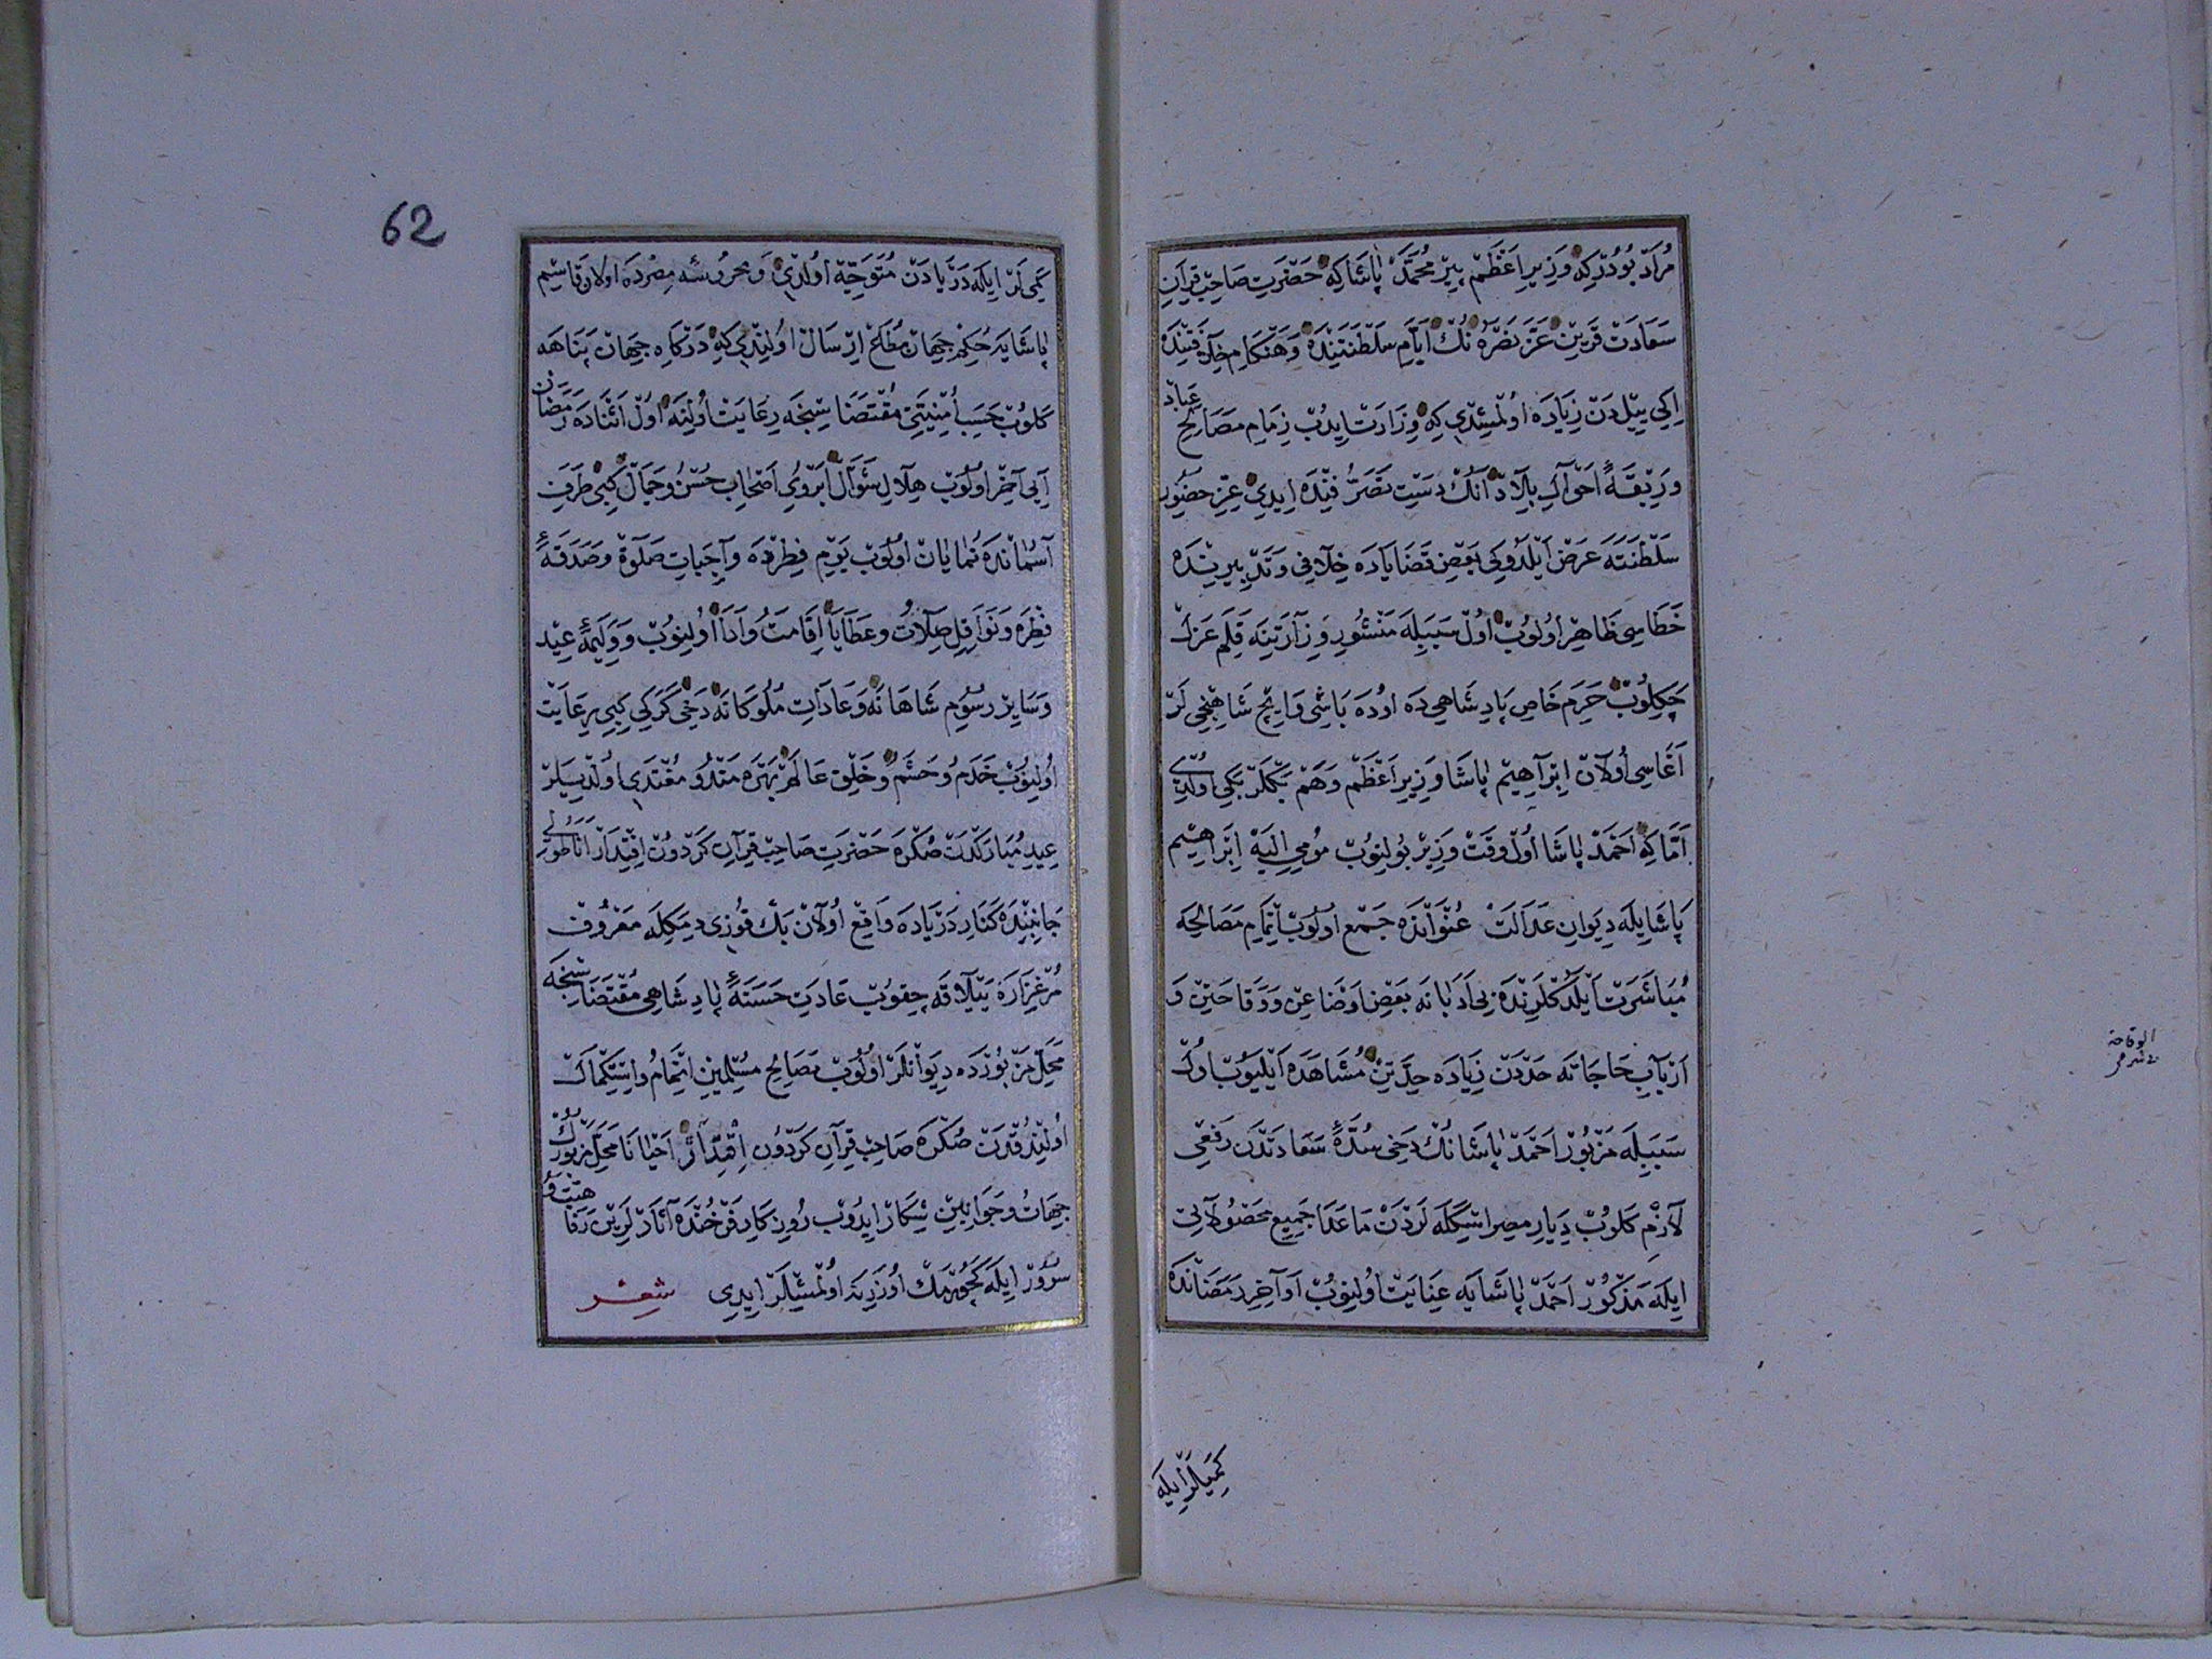 مراد بودر که وزیر اعظم پیر محمد پاشا که حضرت صاحب قران
سعادت قرین عز نصره نک ایام سلطنتنده و هنکام خلافتنده
ایکی ییلدن زیاده اولمشدی که وزارت ایدوب زمام مصالح عباد
و ربقۀ احوال بلاد انک دست تصرفنده ایدی عز حضور
سلطنته عرض ایلدوکی بعض قضایاده خلافی و تدبیرنده
خطاسی ظاهر اولوب اول سببله منشور وزارتنه قلم عزل
چکلوب حرم خاص پادشاهی ده اوده باشی و ایچ شاهنجی لر
اغاسی اولان ابراهیم پاشا وزیر اعظم و هم بکلر بکی اولدی
اما که احمد پاشا اول وقت وزیر بولنوب مومی الیه ابراهیم
پاشا یله دیوان عدالت عنوانده جمع اولوب اتمام مصالحه
مباشرت ایلدکلرنده بی ادبانه بعض اوضاعن و وقاحتن و
ارباب حاجاته حددن زیاده حدتن مشاهده ایلیوب اول
سببله مزبور احمد پاشا نک دخی سدۀ سعادتدن رفعی
لازم کلوب دیار مصر اسکله لردن ماعدا جمیع محصولاتی
ایله مذکور احمد پاشایه عنایت اولنوب اواخر رمضانده
کمیلر ایله
الوقاحة
62
کمی لر ایله دریادن متوجه اولدی و محروسه مصرده اولان قاسم
پاشایه حکم جهان مطاع ارسال اولندی که درکاه جهان پناهه
کلوب حسب امنیتی مقتضاسنجه رعایت اولنه اول اثناده رمضان
ایی آخر اولوب هلال شوال ابروی اصحاب حسن و جمال کبی طرف
آسمانده نمایان اولوب یوم فطرده واجبات صلوة و صدقۀ
فطره و نوافل صلات و عطایا اقامت و ادا اولنوب و ولیمۀ عید
و سایر رسوم شاهانه و عادات ملوکانه دخی کرکی کبی رعایت
اولنوب خدم و حشم و خلق عالم بهره مند و مغتدی اولدیلر
عید مبارکدن صکره حضرت صاحب قران کردون اقتدار اناطولی
جانبنده کنار دریاده واقع اولان بک قوزی دیمکله معروف
مرغزاره ییلاقه چقوب عادت حسنۀ پادشاهی مقتضاسنجه
محل مزبورده دیوانلر اولوب مصالح مسلمین اتمام و استکمال
اولندقدن صکره صاحب قران کردون اقتدار احیانا محل مزبورک
جهات و جوانبین شکار ایدوب روزکار فرخنده آثارلرین رفاهیت و
سرور ایله کچورمک اوزرینه اولمشلر ایدی شعر